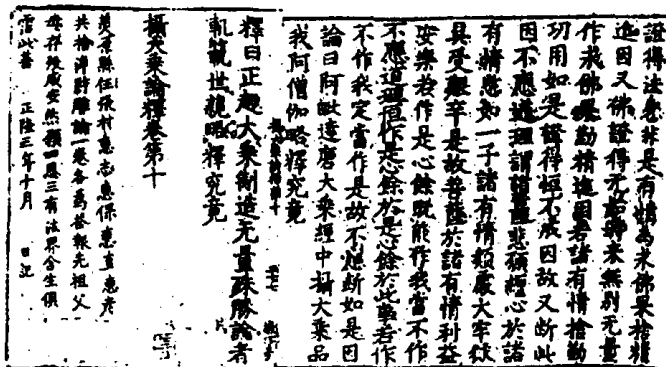 證得法身非是有情為求佛果捨精
進因又佛證得無始時來無別无量
作求佛果勤精進因若諸有情捨勤
功用如是證得恒不成因故又斷此
因不應道理謂諸菩薩悲願纏心於諸
有情愍如一子諸有情類處大牢獄
具受艱辛是故菩薩於諸有情利益
安樂若作是心餘既能作我當不作
不應道理恒作是心餘於是心餘於此事若作
不作我定當作是故不應斷如是因
論曰阿毗達磨大乘經中攝大乘品
我阿僧伽略釋究竟
釋曰正趣大乘制造无量殊勝論者
軌範世親略釋究竟
攝大乘論釋卷第十
縣任張村惠志惠保惠直惠考
共捨淨財雕論一卷各爲荅報先祖父
母 四恩三有法界含生俱
霑此善 正隆三年十月 日記